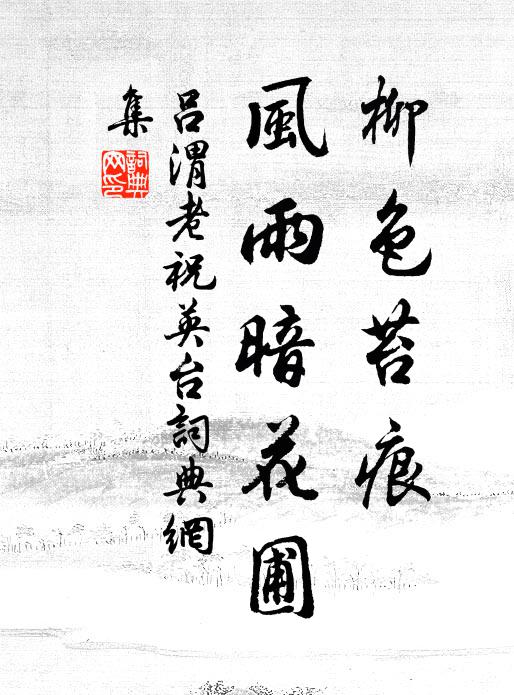 柳色苔痕
風雨暗花圃
呂渭老祝英台詞典網
集
詞典网印